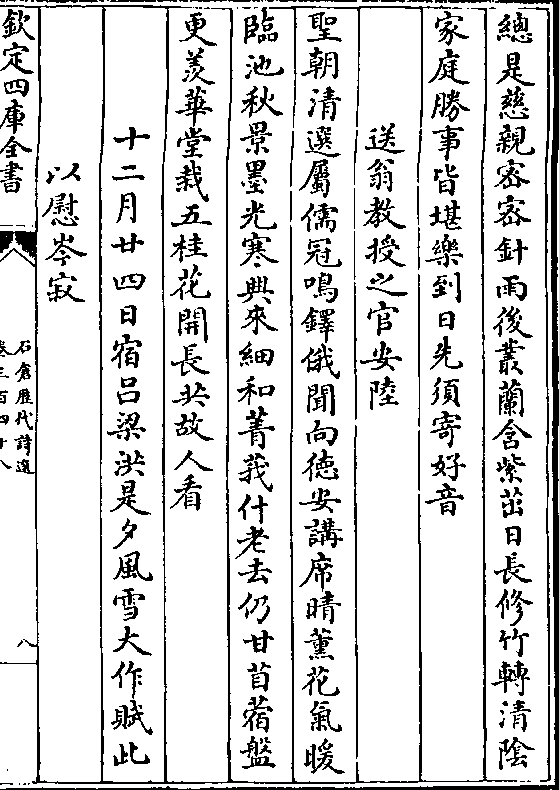 總是慈親密密針雨後叢蘭含紫茁日長修竹轉清陰
家庭勝事皆堪樂到日先須寄好音
送翁教授之官安陸
聖朝清選屬儒冠鳴鐸俄聞向徳安講席晴薰花氣暖
臨池秋景墨光寒興來細和菁莪什老去仍甘苜蓿盤
更羨華堂栽五桂花開長共故人看
十二月廿四日宿吕梁洪是夕風雪大作賦此
以慰岑寂
欽定四庫全書
石倉歴代詩選
卷三百四十八
八